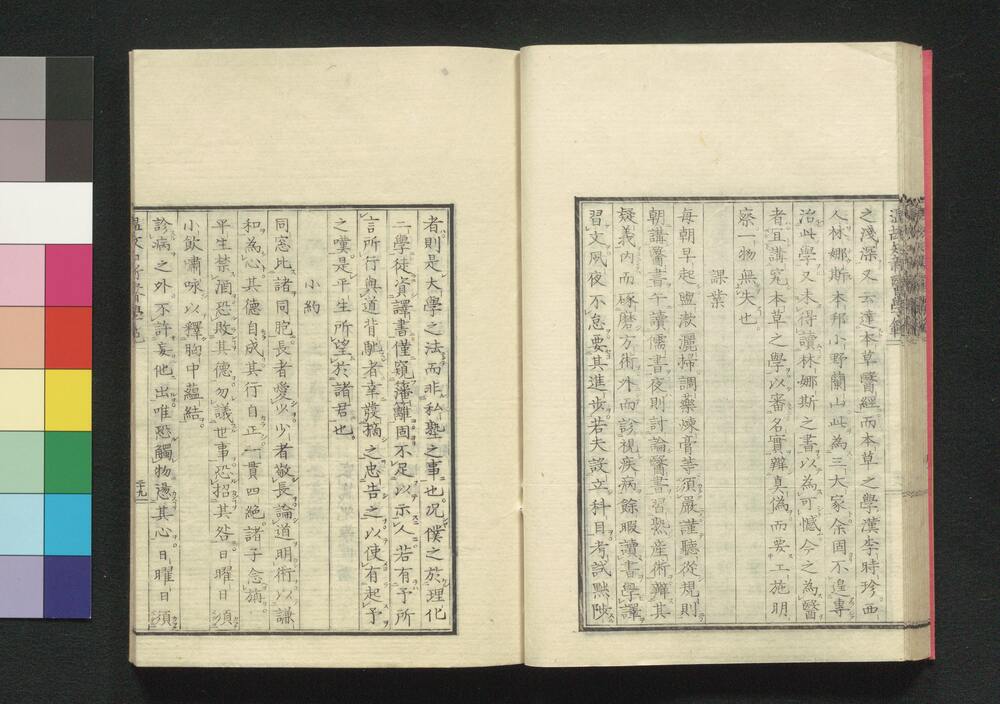 之淺深又云達本草醫經而本草之學漢李時珍西
人林娜斯本邦小野蘭山此為三大家余固不遑專
治此學又未得讀林娜斯之書以為可憾今之為醫
者宜講究本草之學以審名實辨真偽而要工施明
察一物無失也
課業
每朝早起盥漱灑掃調藥煉膏等須嚴謹聽從規則
朝講醫書午讀儒書夜則討論醫書習熟産術辨其
疑義內而琢磨方術外而診視疾病餘暇讀書學譯
習文夙夜不怠要其進步若夫設立科目考試黜陟
者則是大學之法而非私塾之事也况僕之於理化
二學徒資譯書僅窺藩籬固不足以示人若有予所
言所行與道背馳者幸發摘之忠告之以使有起予
之嘆是平生所望於諸君也
小約
同窓比諸同胞長者愛少少者敬長論道明術以謙
和為心其德自成其行自正一貫四絶諸子念旃
平生禁酒恐敗其德勿議世事恐招其咎日曜日須
小飲嘯咏以釋胸中蘊結
診病之外不許妄他出唯恐觸物憑其心日曜日須
二十九